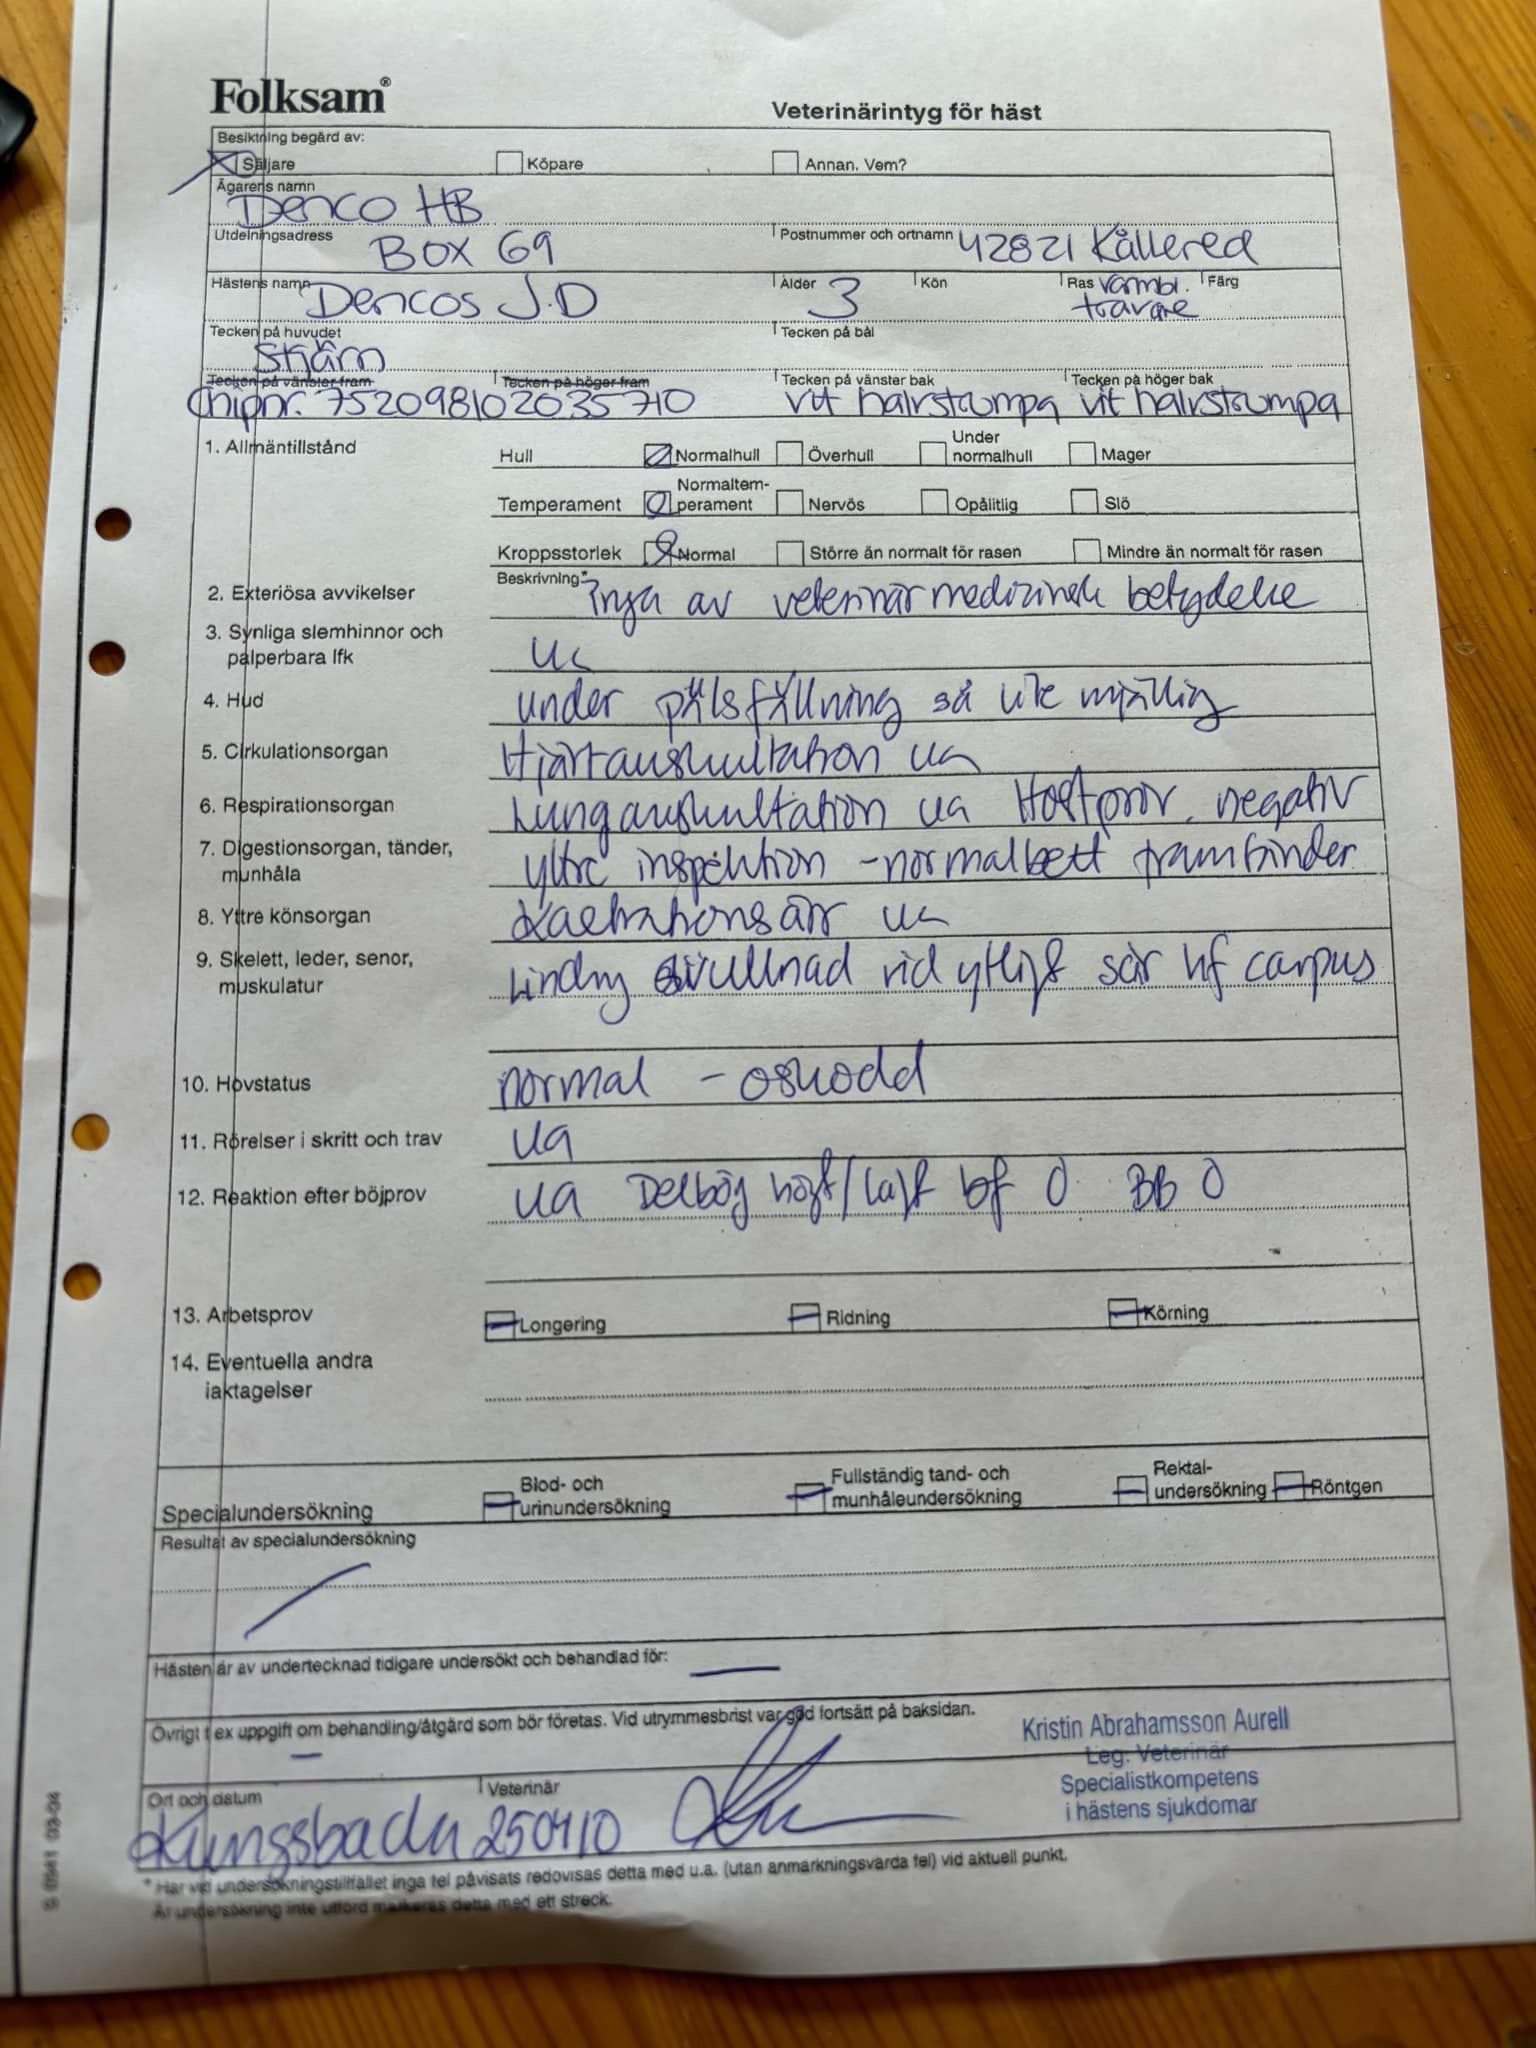 Folksam®
Veterinärintyg för häst
Besiktning begärd av:
Säljare Köpare Annan. Vem?
Ägarens namn
Denco HB
Utdelningsadress Postnummer och ortnamn
Box 69 42821 Kållered
Hästens namn Ålder Kön Ras Färg
Dencos J.D 3 varmbl. travare
Tecken på huvudet Tecken på bål
Stjärn
Tecken på vänster fram Tecken på höger fram Tecken på vänster bak Tecken på höger bak
Chipnr. 752098102035710 vit halvstrumpa vit halvstrumpa
1. Allmäntillstånd
Hull Normalhull Överhull Under normalhull Mager
Temperament Normaltem-perament Nervös Opålitlig Slö
Kroppsstorlek Normal Större än normalt för rasen Mindre än normalt för rasen
Beskrivning*
2. Exteriösa avvikelser Inga av veterinärmedicinsk betydelse
3. Synliga slemhinnor och
palperbara lfk ua
4. Hud under pälsfällning så lite mjällig
5. Cirkulationsorgan Hjärtauskultation ua
6. Respirationsorgan Lungauskultation ua Hostprov. negativ
7. Digestionsorgan, tänder,
munhåla yttre inspektion - normalbett framtänder
8. Yttre könsorgan Kastrationsärr ua
9. Skelett, leder, senor,
muskulatur Lindrig svullnad vid ytligt sår hf carpus
10. Hovstatus normal - oskodd
11. Rörelser i skritt och trav ua
12. Reaktion efter böjprov ua Delböj högt/lågt bf 0 BB 0
13. Arbetsprov Longering Ridning Körning
14. Eventuella andra
iaktagelser
Specialundersökning Blod- och urinundersökning Fullständig tand- och munhåleundersökning Rektal-undersökning Röntgen
Resultat av specialundersökning
Hästen är av undertecknad tidigare undersökt och behandlad för: —
Övrigt t ex uppgift om behandling/åtgärd som bör företas. Vid utrymmesbrist var god fortsätt på baksidan.
—
Kristin Abrahamsson Aurell
Leg. Veterinär
Specialistkompetens
i hästens sjukdomar
Ort och datum Veterinär
Kungsbacka 250410
* Har vid undersökningstillfället inga fel påvisats redovisas detta med u.a. (utan anmärkningsvärda fel) vid aktuell punkt.
Är undersökning inte utförd markeras detta med ett streck.